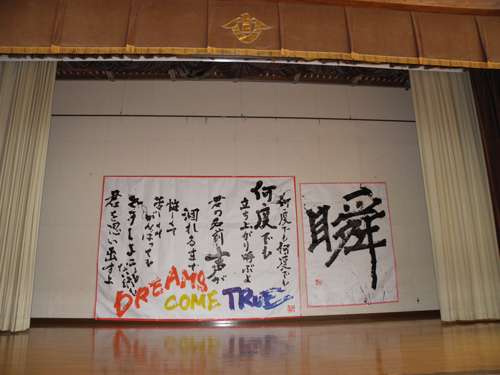 瞬
何度でも何度でも
何度でも
立ち上がり呼ぶよ
君の名前 声が
涸れるまで
悔しくて
苦しくて
がんばっても
どうしようもない時も
君を思い出すよ
DREAMS
COME TRUE